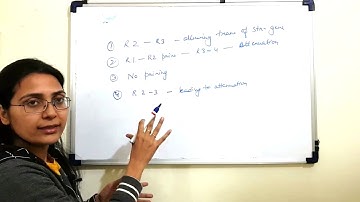 ① R 2 – R3 – allowing trans of str. gene
② R1 – R2 pairs – R3-4 – Attenuation
③ No pairing
④ R 2-3 – leading to attenuation